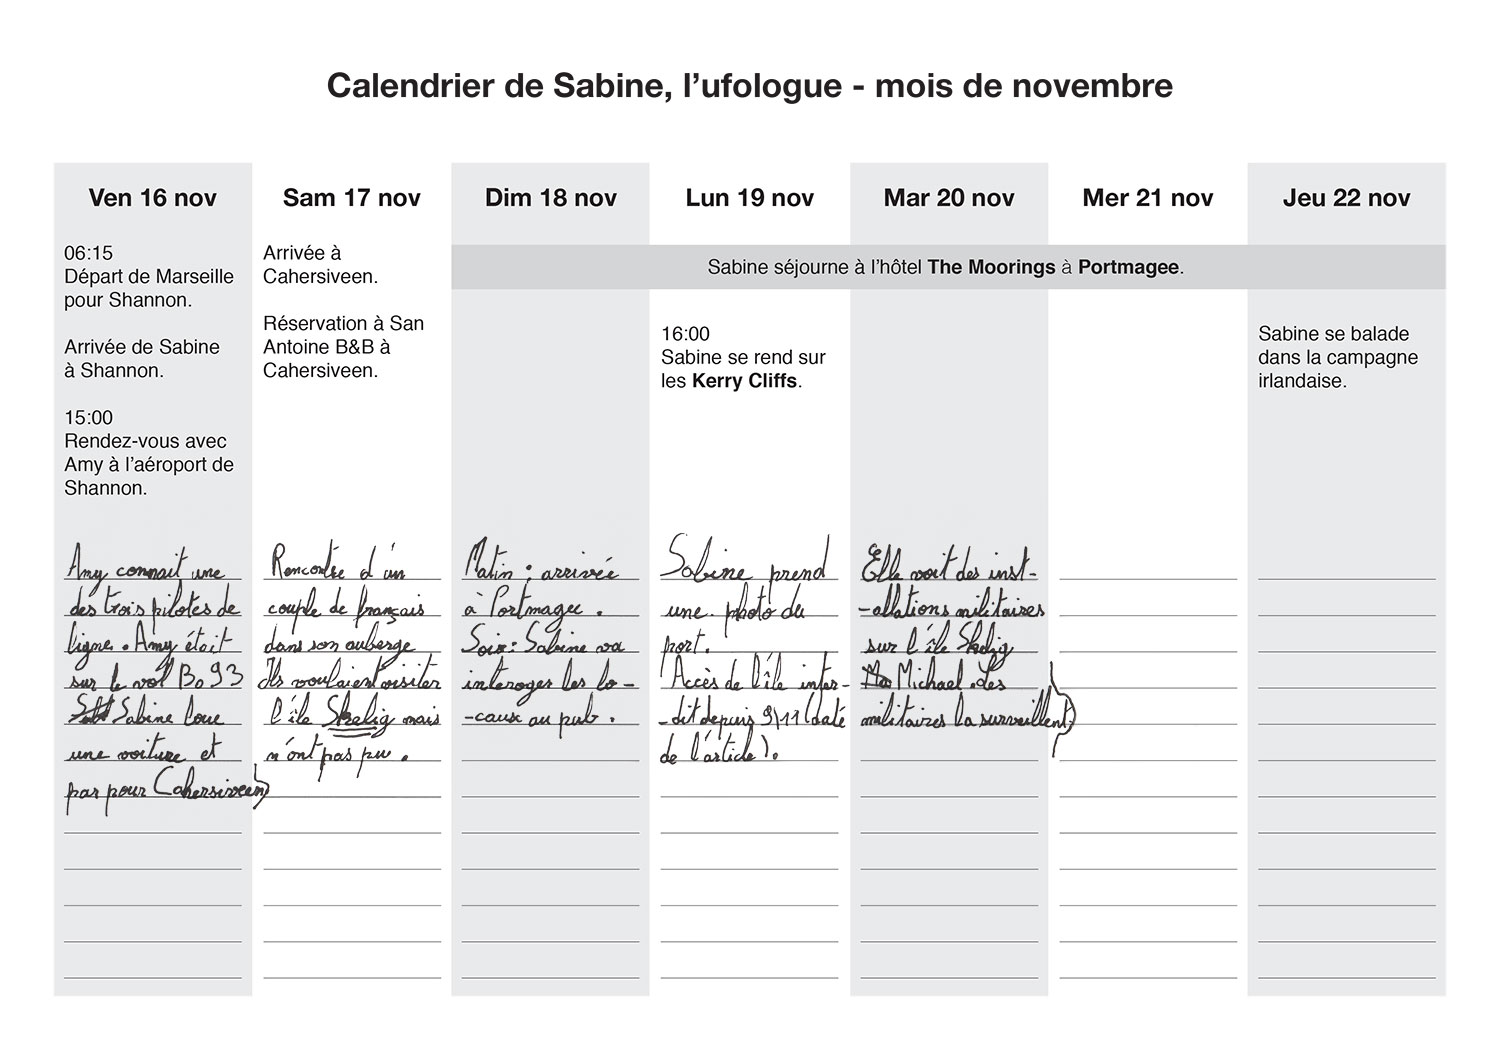 Calendrier de Sabine, l’ufologue - mois de novembre
Ven 16 nov
06:15
Départ de Marseille
pour Shannon.
Arrivée de Sabine
à Shannon.
15:00
Rendez-vous avec
Amy à l’aéroport de
Shannon.
Amy connait une
des trois pilotes de
ligne. Amy était
sur le vol B093
Sabine loue
une voiture et
par pour Cahersiveen
Sam 17 nov
Arrivée à
Cahersiveen.
Réservation à San
Antoine B&B à
Cahersiveen.
Rencontre d'un
couple de français
dans son auberge
Ils voulaient visiter
l'île Skelig mais
n'ont pas pu.
Sabine séjourne à l’hôtel The Moorings à Portmagee.
Dim 18 nov
Matin : arrivée
à Portmagee.
Soir : Sabine va
interoger les lo-
-caux au pub.
Lun 19 nov
16:00
Sabine se rend sur
les Kerry Cliffs.
Sabine prend
une photo du
port.
Accès de l'île inter-
-dit depuis 9/11 (date
de l'article).
Mar 20 nov
Elle voit des inst-
-allations militaires
sur l'île Skelig
Michael. Les
militaires la surveillent.
Mer 21 nov
Jeu 22 nov
Sabine se balade
dans la campagne
irlandaise.